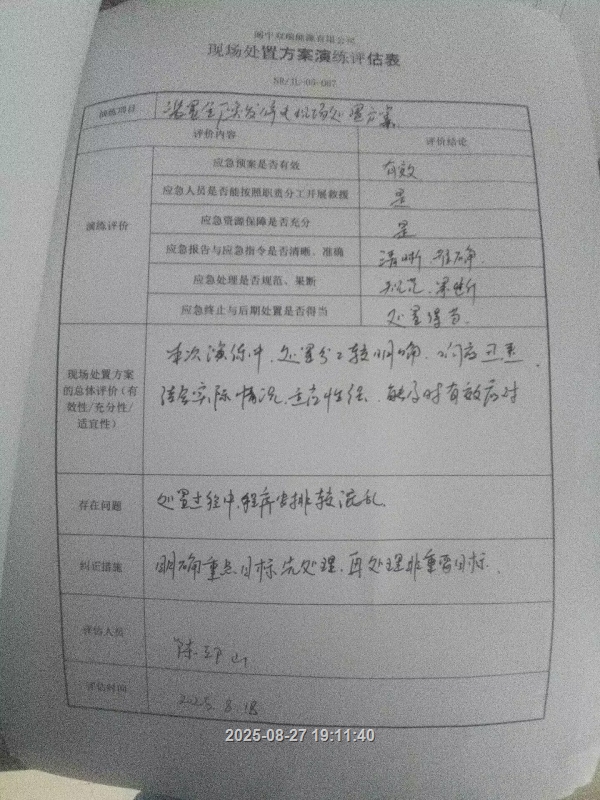 现场处置方案演练评估表
NR/JL-05-067
演练项目 装置全厂突发停电现场处置方案
评价内容 评价结论
演练评价
应急预案是否有效 有效
应急人员是否能按照职责分工开展救援 是
应急资源保障是否充分 是
应急报告与应急指令是否清晰、准确 清晰、准确.
应急处理是否规范、果断 规范、果断
应急终止与后期处置是否得当 处置得当.
现场处置方案
的总体评价(有
效性/充分性/
适宜性)
本次演练中,处置分工较明确,响应迅速,
结合实际情况,适应性强,能及时有效应对
存在问题 处置过程中,程序安排较混乱.
纠正措施 明确重点目标先处理,再处理非重要目标.
评估人员
评估时间 2025.8.18
2025-08-27 19:11:40